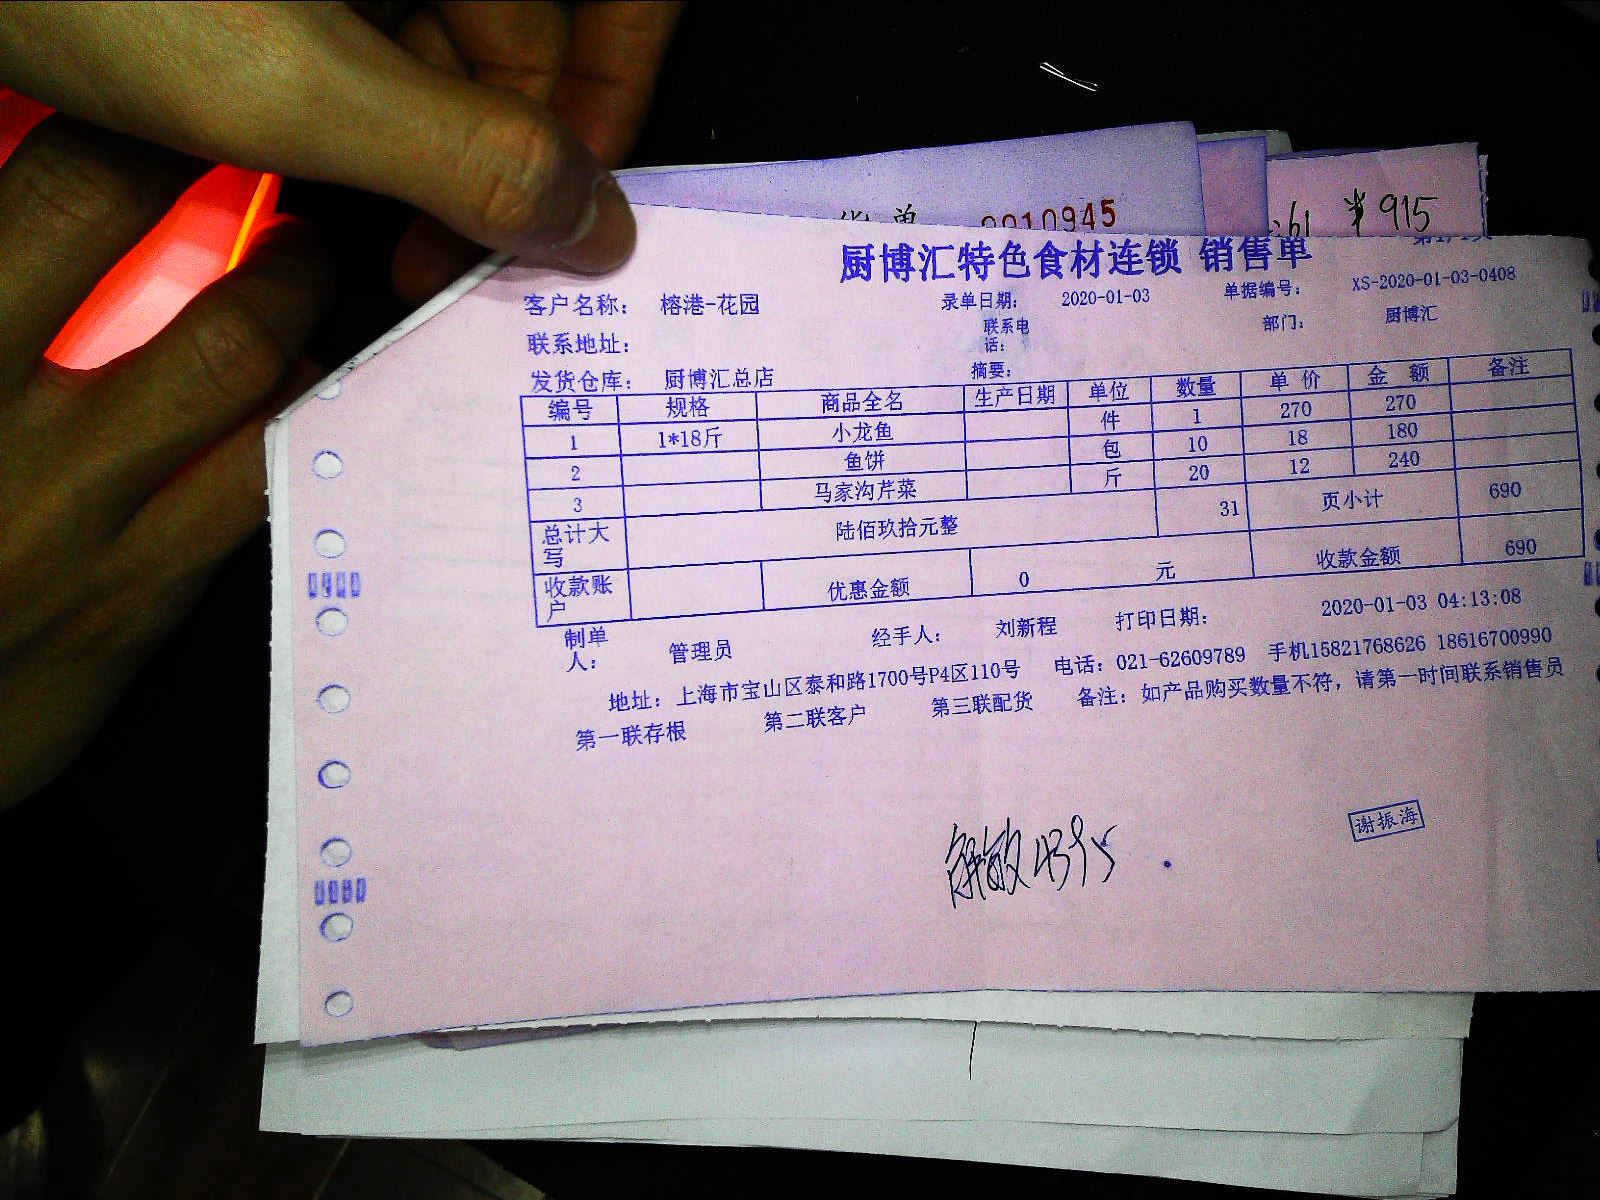 0010945
¥915
厨博汇特色食材连锁 销售单
客户名称： 榕港-花园 录单日期： 2020-01-03 单据编号： XS-2020-01-03-0408
联系地址： 联系电话： 部门： 厨博汇
发货仓库： 厨博汇总店 摘要：
编号 规格 商品全名 生产日期 单位 数量 单价 金额 备注
1 1*18斤 小龙鱼 件 1 270 270
2 鱼饼 包 10 18 180
3 马家沟芹菜 斤 20 12 240
总计大写 陆佰玖拾元整 31 页小计 690
收款账户 优惠金额 0 元 收款金额 690
制单人： 管理员 经手人： 刘新程 打印日期： 2020-01-03 04:13:08
地址：上海市宝山区泰和路1700号P4区110号 电话：021-62609789 手机15821768626 18616700990
第一联存根 第二联客户 第三联配货 备注：如产品购买数量不符，请第一时间联系销售员
谢振海